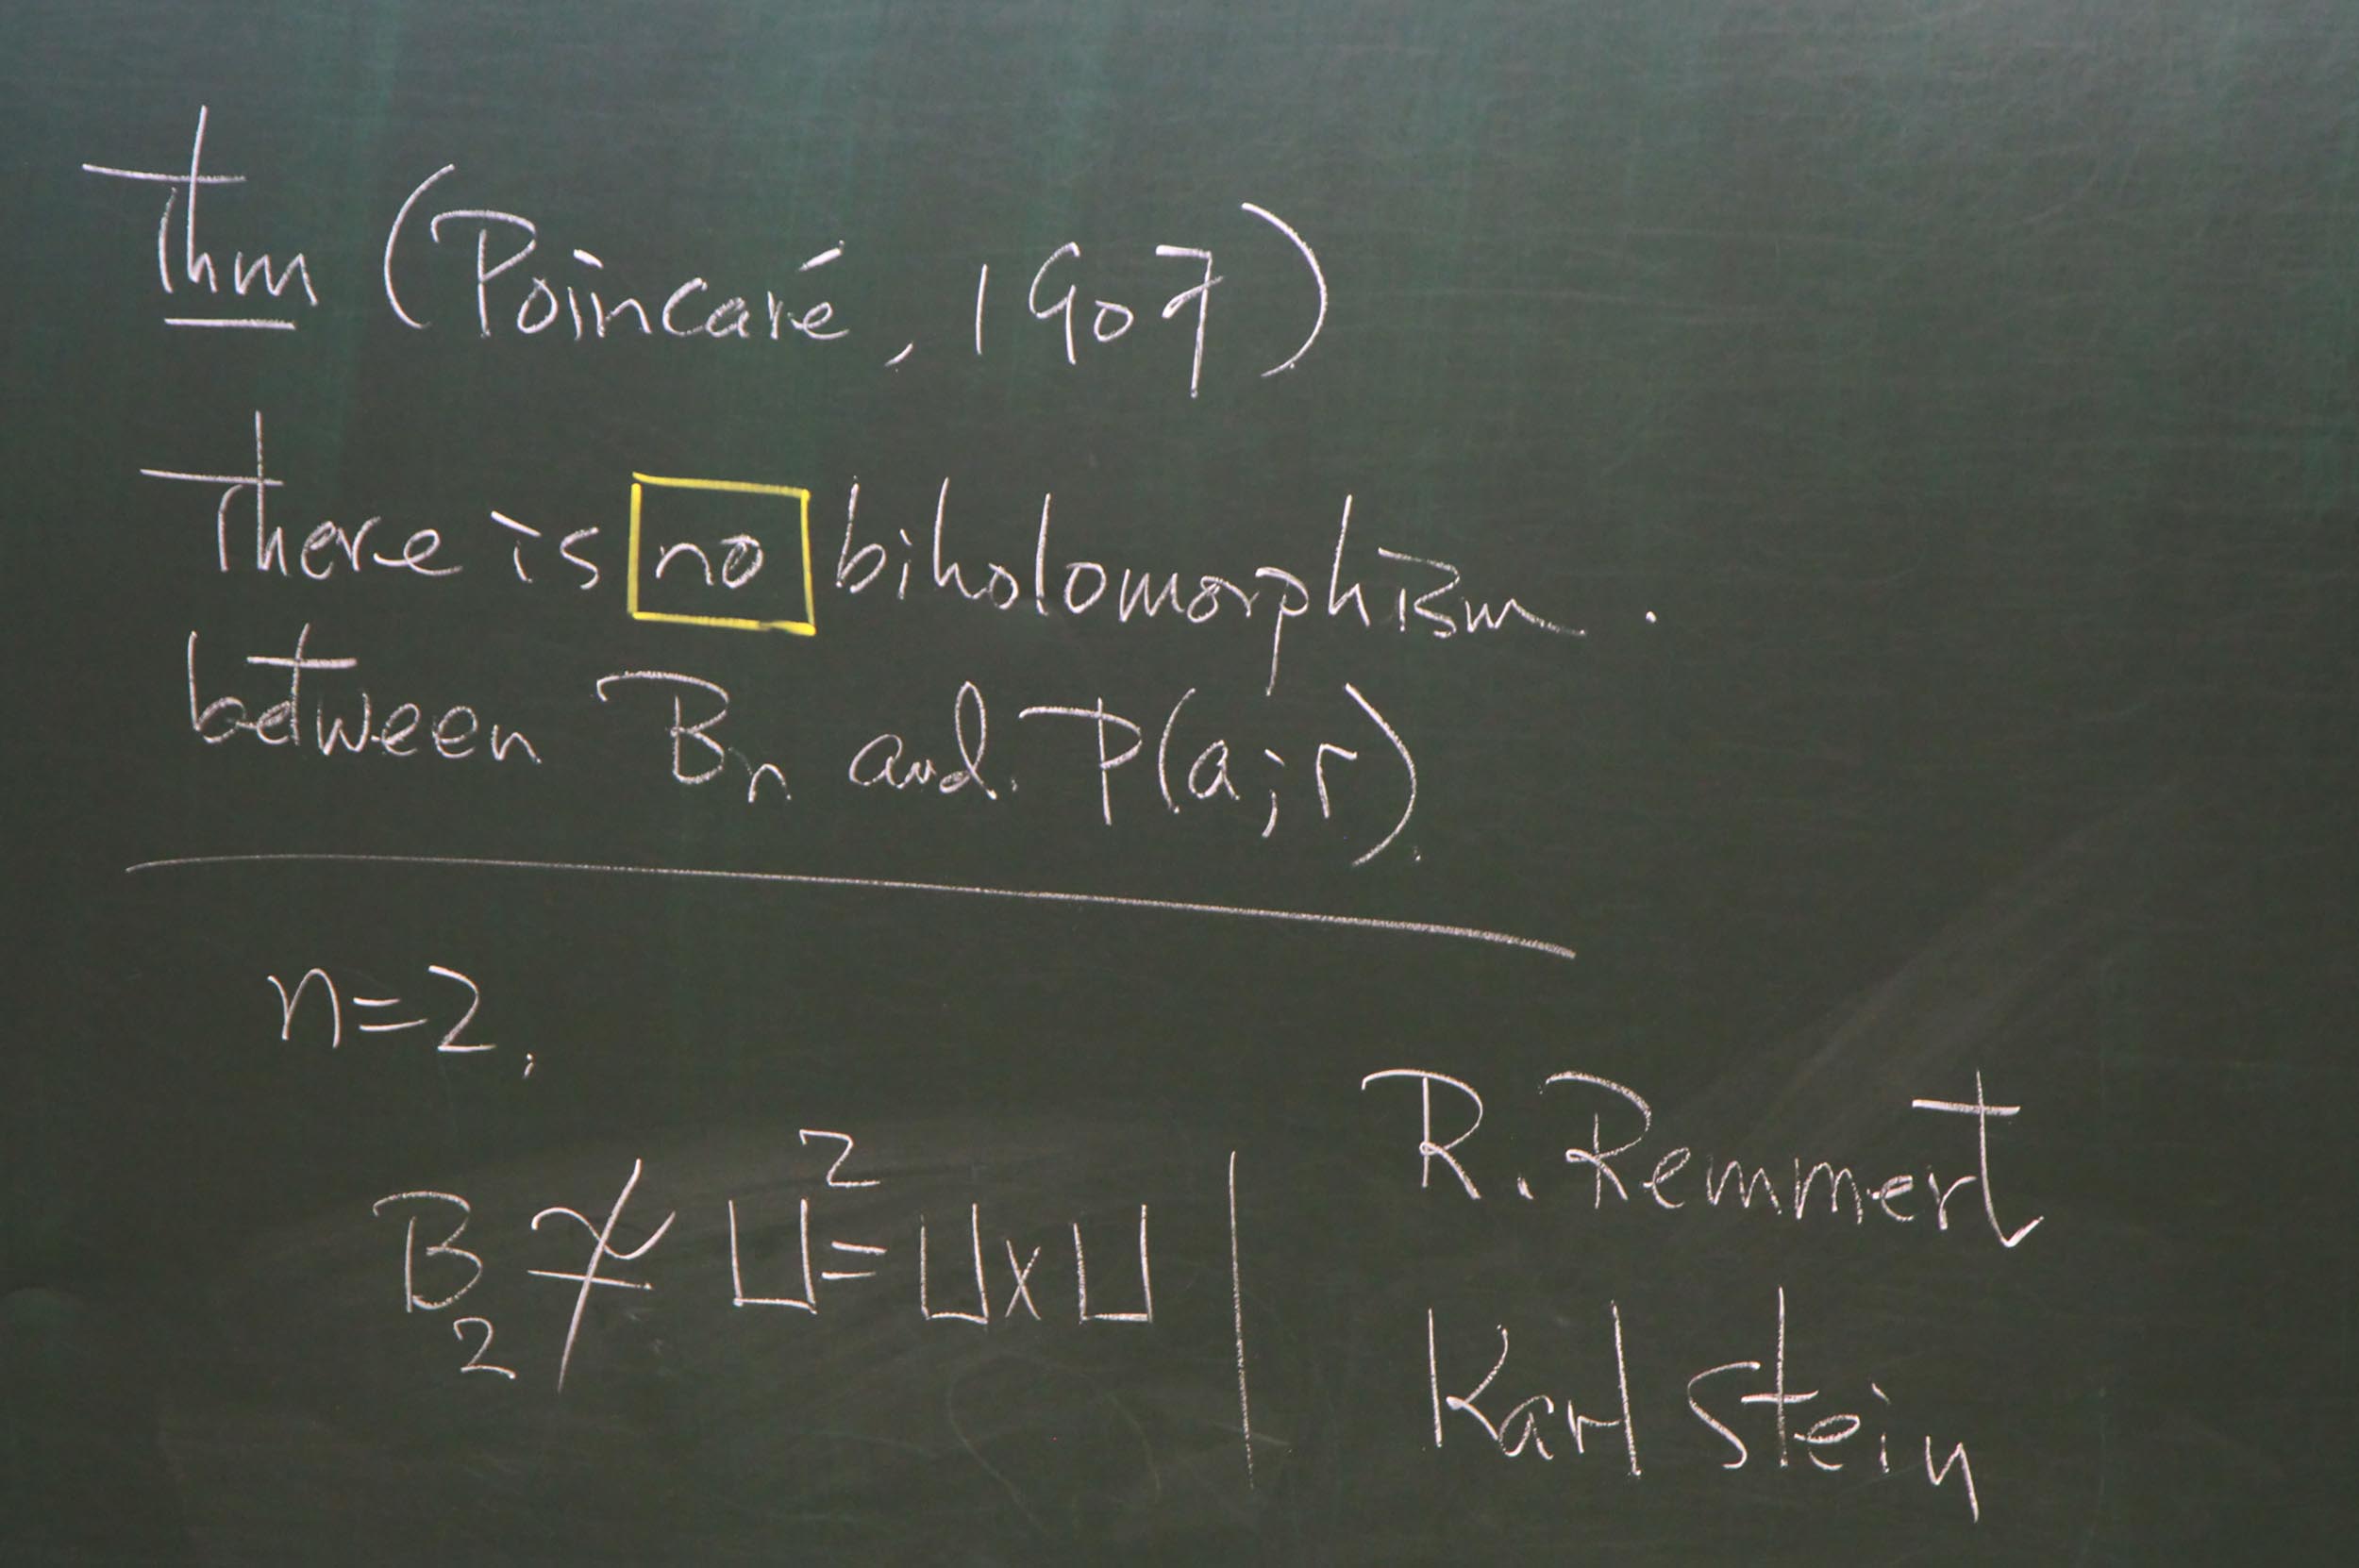 Thm (Poincaré, 1907)
There is no biholomorphism.
between Bn and. P(a;r).
n=2,
B₂ ≄ U² = U×U
R. Remmert
Karl Stein